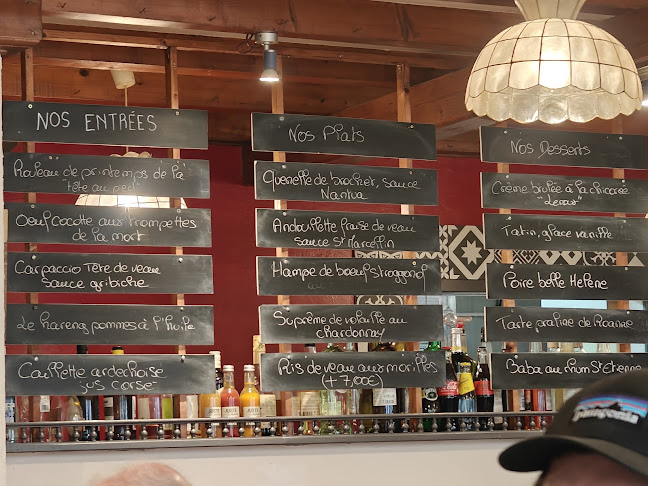 NOS ENTRÉES
Rouleau de printemps de la
"tête au pied"
Oeuf cocotte aux trompettes
de la mort
Carpaccio Tête de veau
sauce gribiche
Le hareng pommes à l'huile
Caillette ardéchoise
jus corsé
Nos Plats
Quenelle de brochet, sauce
Nantua
Andouillette fraise de veau
sauce St Marcellin
Hampe de boeuf Stroggonof
Suprême de volaille au
chardonnay
Ris de veau aux morilles
(+7,00€)
Nos Desserts
Crème brulée à la chicorée
"Leroux"
Tatin, glace vanille
Poire belle Hélène
Tarte praline de Roanne
Baba au rhum St Etienne
patagonia